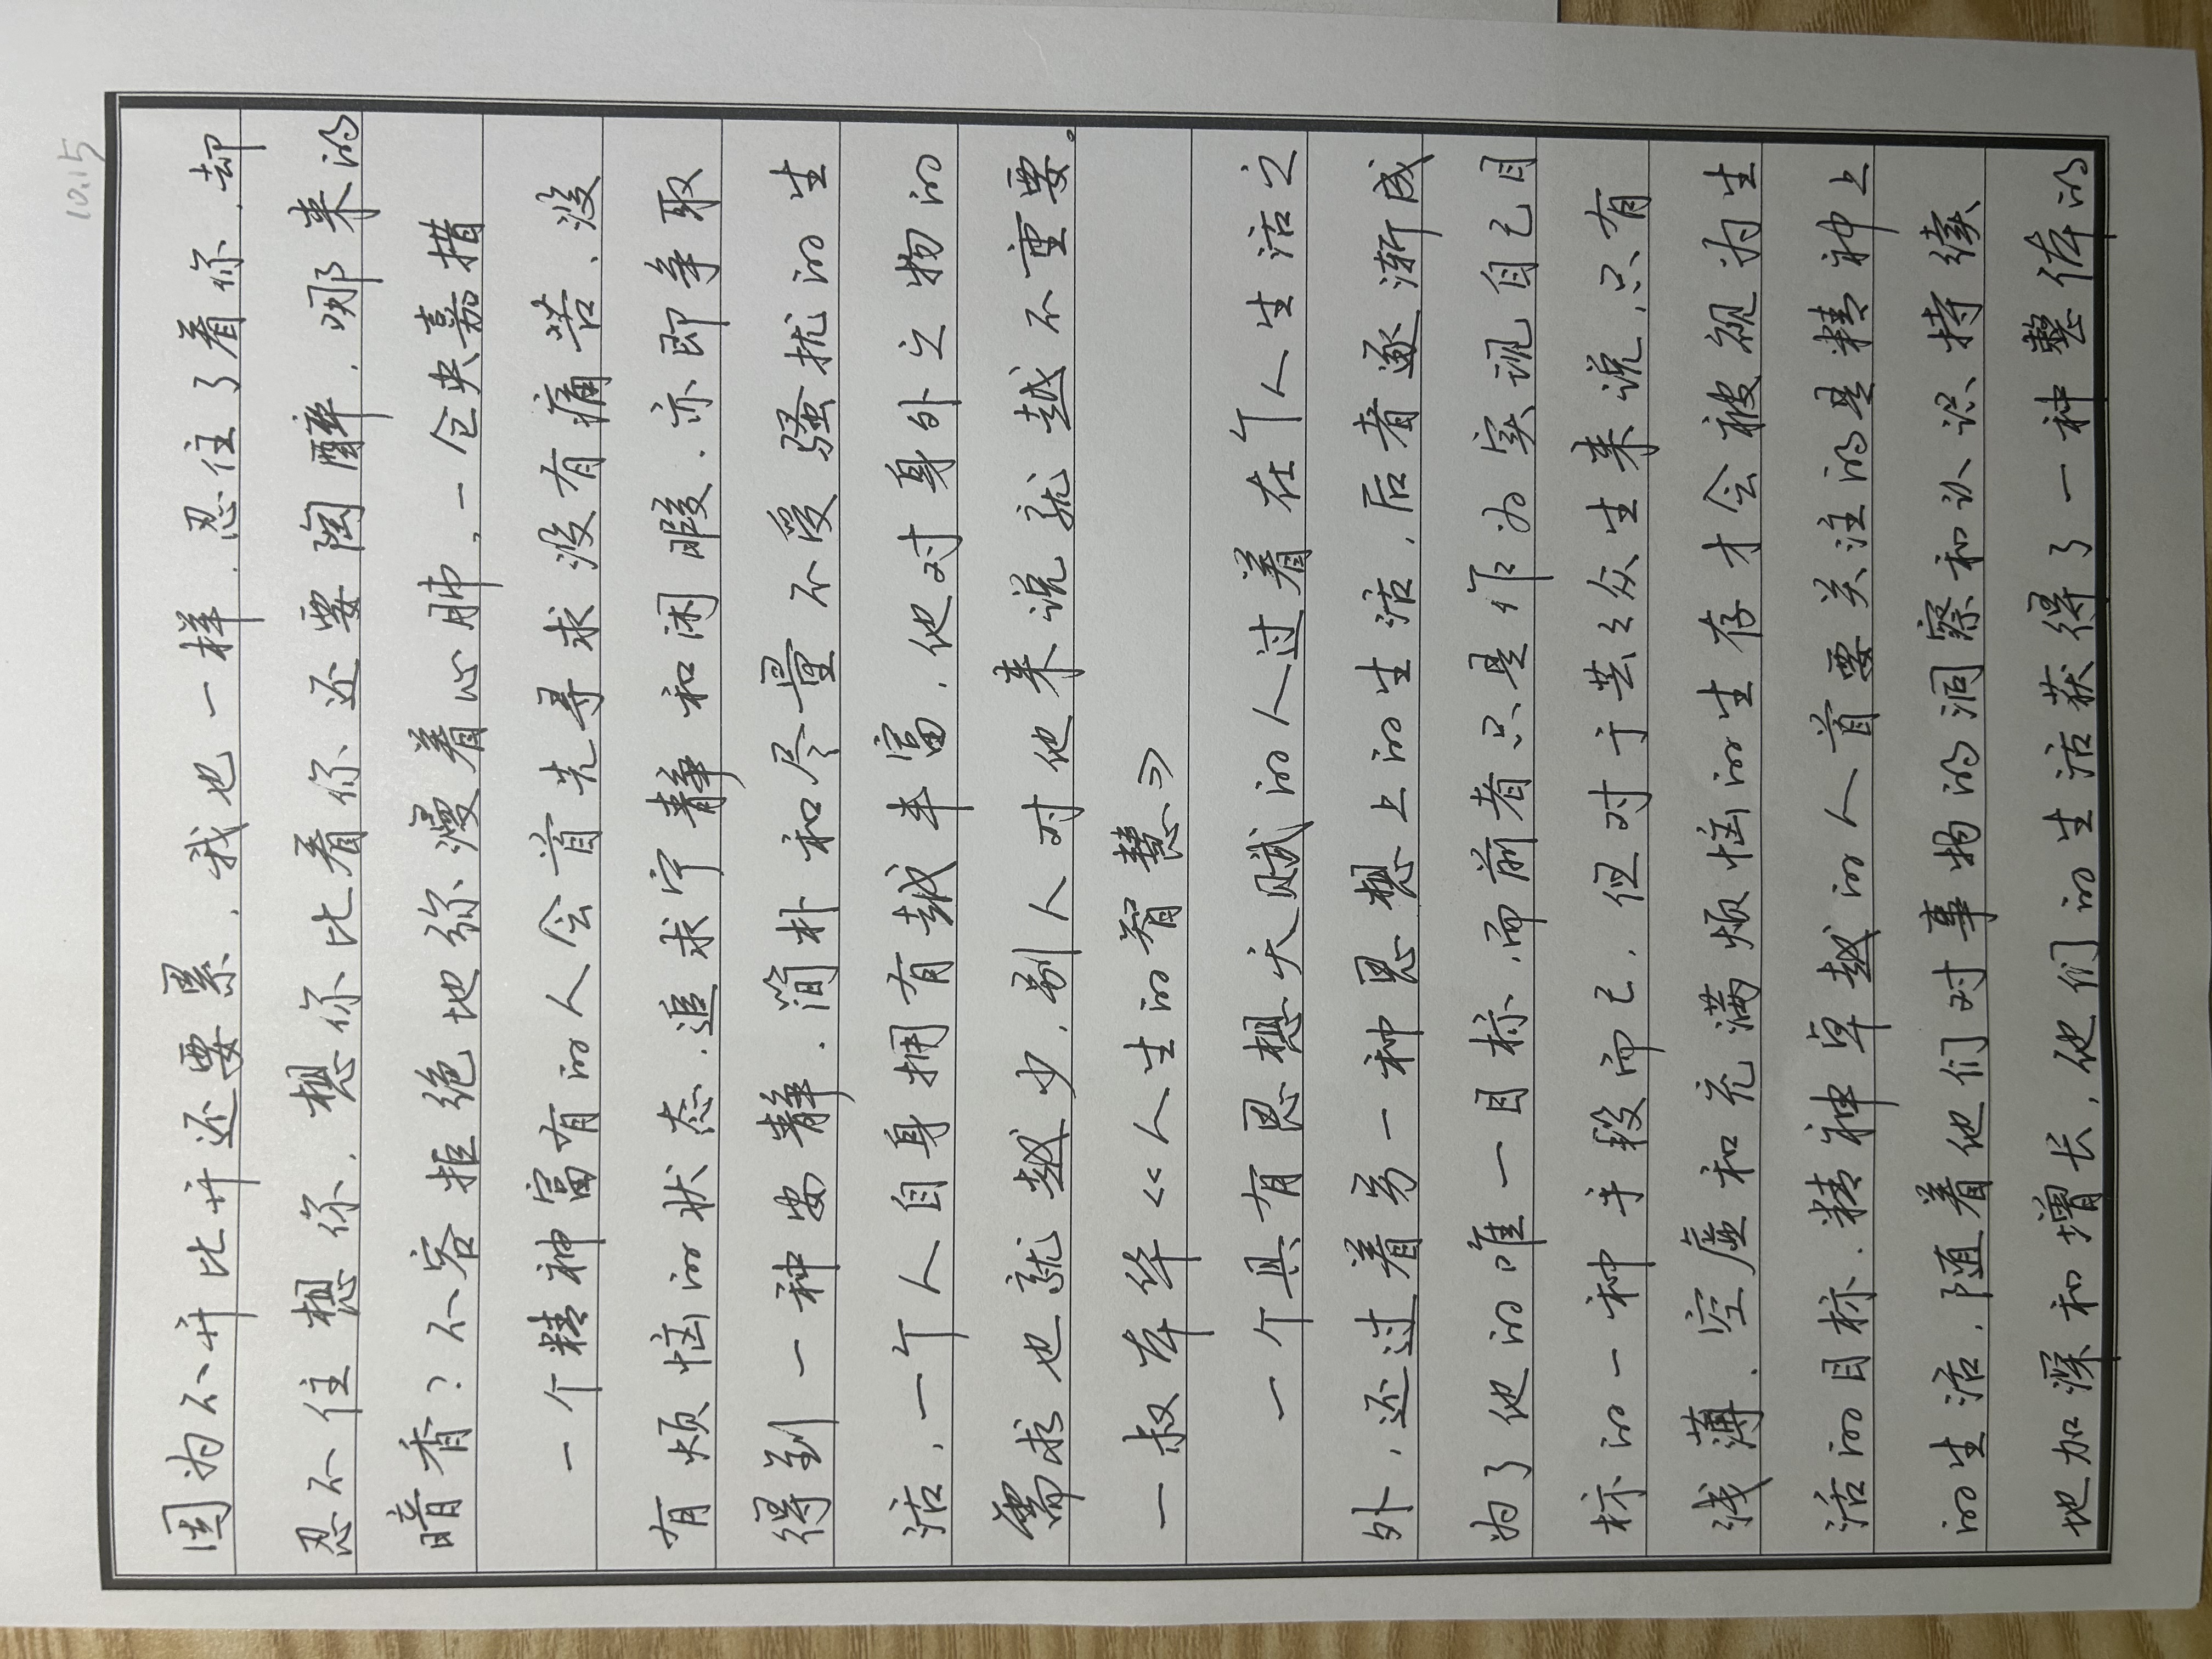 10.15
因为不开比开还要累，我也一样，忍住了看你，却
忍不住想你，想你比看你还要陶醉，哪来的
暗香？不容拒绝地弥漫着心肺。—仓央嘉措
一个精神富有的人会首先寻求没有痛苦、没
有烦恼的状态，追求宁静和闲暇，亦即争取
得到一种安静、简朴和尽量不受骚扰的生
活，一个人自身拥有越丰富，他对身外之物的
需求也就越少，别人对他来说就越不重要。
—叔本华《人生的智慧》
一个具有思想天赋的人过着在个人生活之
外，还过着另一种思想上的生活，后者逐渐成
为了他的唯一目标，而前者只是作为实现自己目
标的一种手段而已，但对于芸々众生来说，只有
浅薄、空虚和充满烦恼的生存才会被视为生
活的目标，精神卓越的人首要关注的是精神上
的生活，随着他们对事物的洞察和认识持续
地加深和增长，他们的生活获得了一种整体的